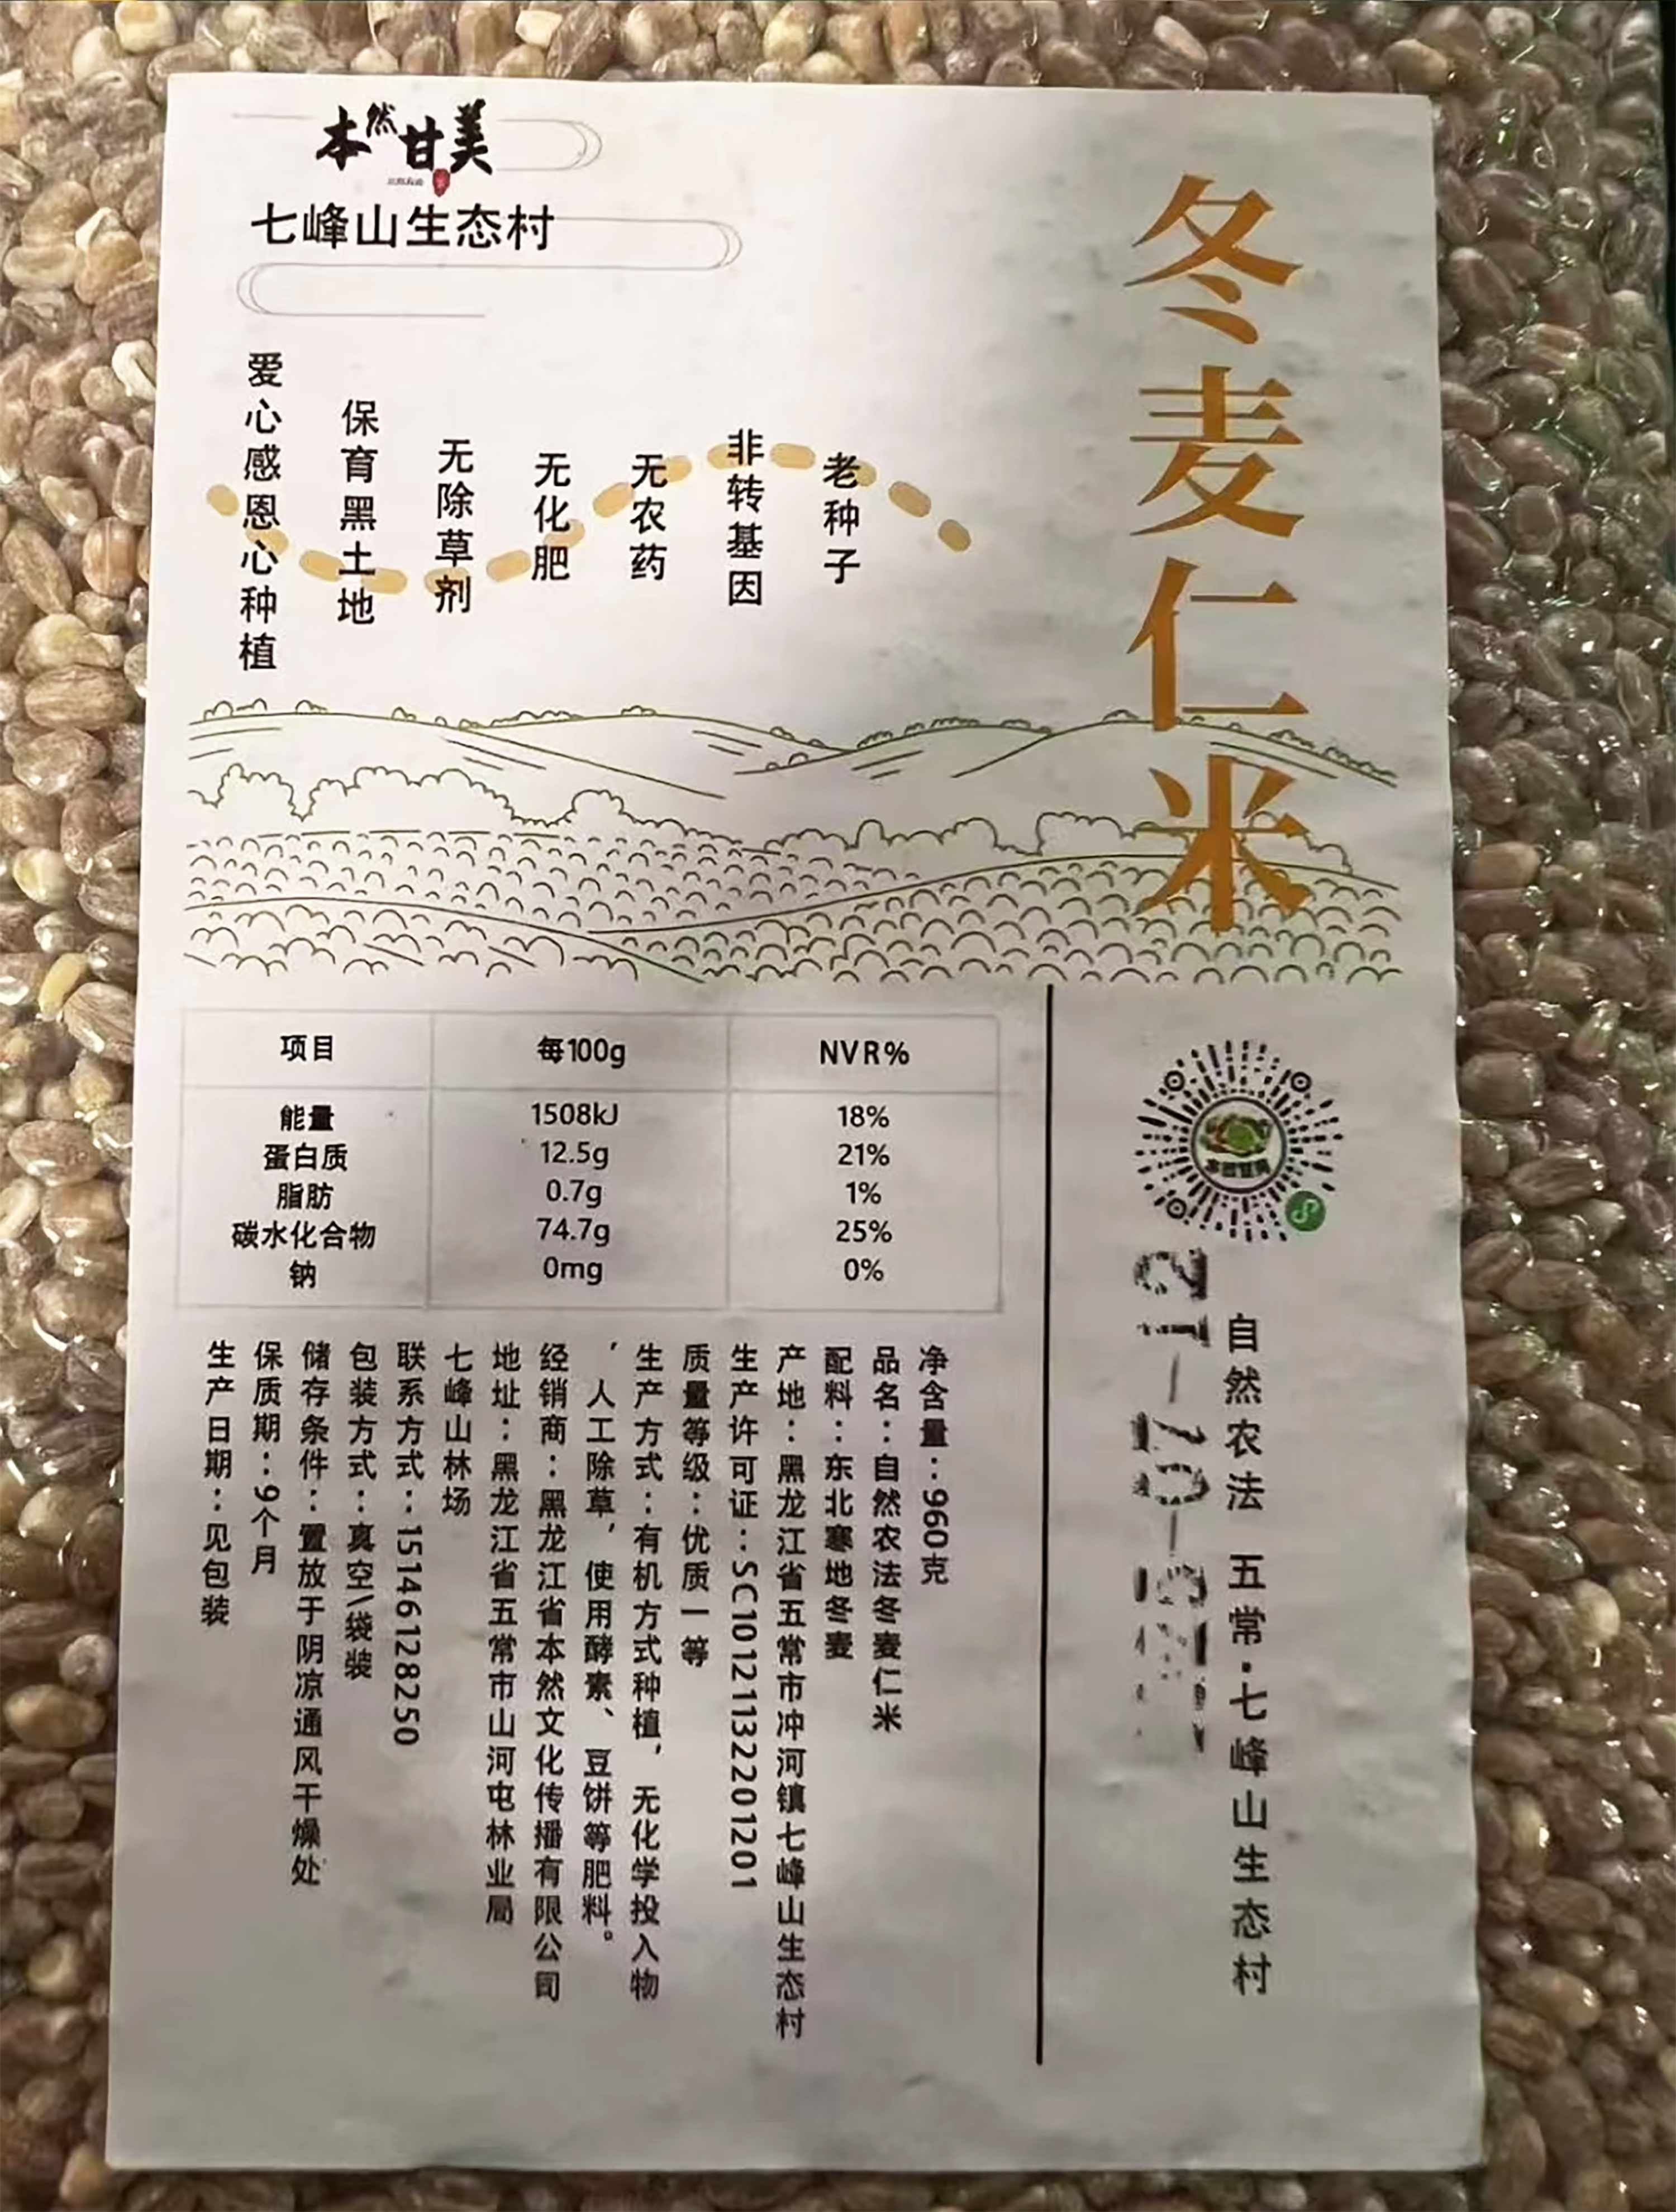 本然甘美
七峰山生态村
冬麦仁米
老种子
非转基因
无农药
无化肥
无除草剂
保育黑土地
爱心感恩心种植
项目 每100g NVR%
能量 1508kJ 18%
蛋白质 12.5g 21%
脂肪 0.7g 1%
碳水化合物 74.7g 25%
钠 0mg 0%
自然农法 五常·七峰山生态村
净含量：960克
品名：自然农法冬麦仁米
配料：东北寒地冬麦
产地：黑龙江省五常市冲河镇七峰山生态村
生产许可证：SC10121132201201
质量等级：优质一等
生产方式：有机方式种植，无化学投入物
，人工除草，使用酵素、豆饼等肥料。
经销商：黑龙江省本然文化传播有限公司
地址：黑龙江省五常市山河屯林业局
七峰山林场
联系方式：15146128250
包装方式：真空\袋装
储存条件：置放于阴凉通风干燥处
保质期：9个月
生产日期：见包装